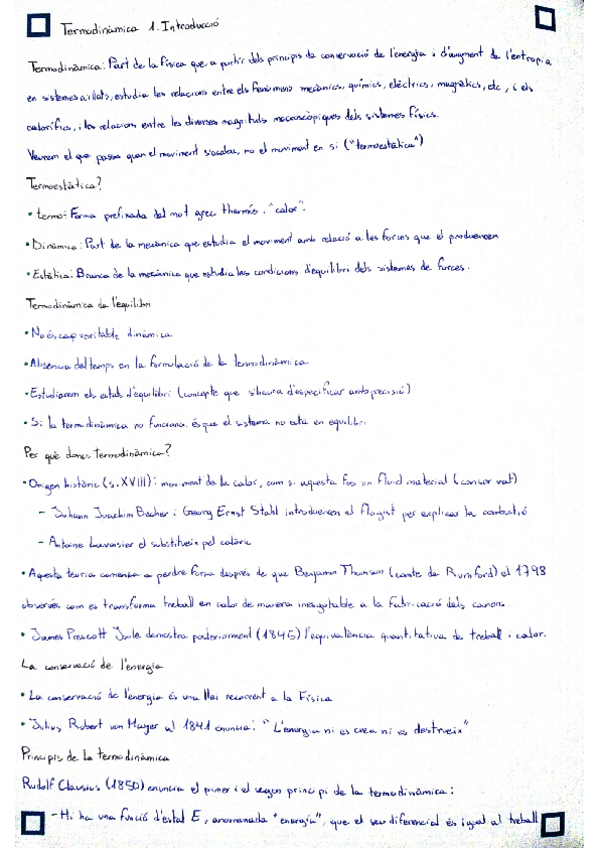 Termodinàmica 1. Introducció
Termodinàmica: Part de la física que a partir dels principis de conservació de l'energia i d'augment de l'entropia
en sistemes aïllats, estudia les relacions entre els fenòmens mecànics, químics, elèctrics, magnètics, etc, i els
calorífics, i les relacions entre les diverses magnituds macroscòpiques dels sistemes físics.
Veurem el que passa quan el moviment s'acaba, no el moviment en si ("termoestàtica")
Termoestàtica?
• termo: Forma prefixada del mot grec thermós, "calor".
• Dinàmica: Part de la mecànica que estudia el moviment amb relació a les forces que el produeixen
• Estàtica: Branca de la mecànica que estudia les condicions d'equilibri dels sistemes de forces.
Termodinàmica de l'equilibri
• No és cap veritable dinàmica
• Absència del temps en la formulació de la termodinàmica
• Estudiarem els estats d'equilibri (concepte que s'haurà d'especificar amb precisió)
• Si la termodinàmica no funciona és que el sistema no està en equilibri.
Per què doncs termodinàmica?
• Origen històric (s. XVIII): moviment de la calor, com si aquesta fos un fluid material (conservat)
- Johann Joachim Becher i Georg Ernst Stahl introdueixen el flogist per explicar la combustió
- Antoine Lavoisier el substitueix pel calòric
• Aquesta teoria comença a perdre força després de que Benjamin Thomson (comte de Rumford) el 1798
observés com es transforma treball en calor de manera inesgotable a la fabricació dels canons.
• James Prescott Joule demostra posteriorment (1845) l'equivalència quantitativa de treball i calor.
La conservació de l'energia
• La conservació de l'energia és una llei recorrent a la Física
• Julius Robert von Mayer al 1841 enuncia: "L'energia ni es crea ni es destrueix"
Principis de la termodinàmica
Rudolf Clausius (1850) enuncia el primer i el segon principi de la termodinàmica:
- Hi ha una funció d'estat E, anomenada "energia", que el seu diferencial és igual al treball